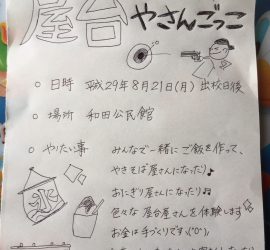 屋台やさんごっこ
○ 日時 平成29年8月21日(月) 出校日後
○ 場所 和田公民館
○ やりたい事 みんなで一緒にご飯を作って、
やきそば屋さんになったり♪
おにぎり屋さんになったり♫
色々な屋台屋さんを体験します
お金は手づくりです(^o^)